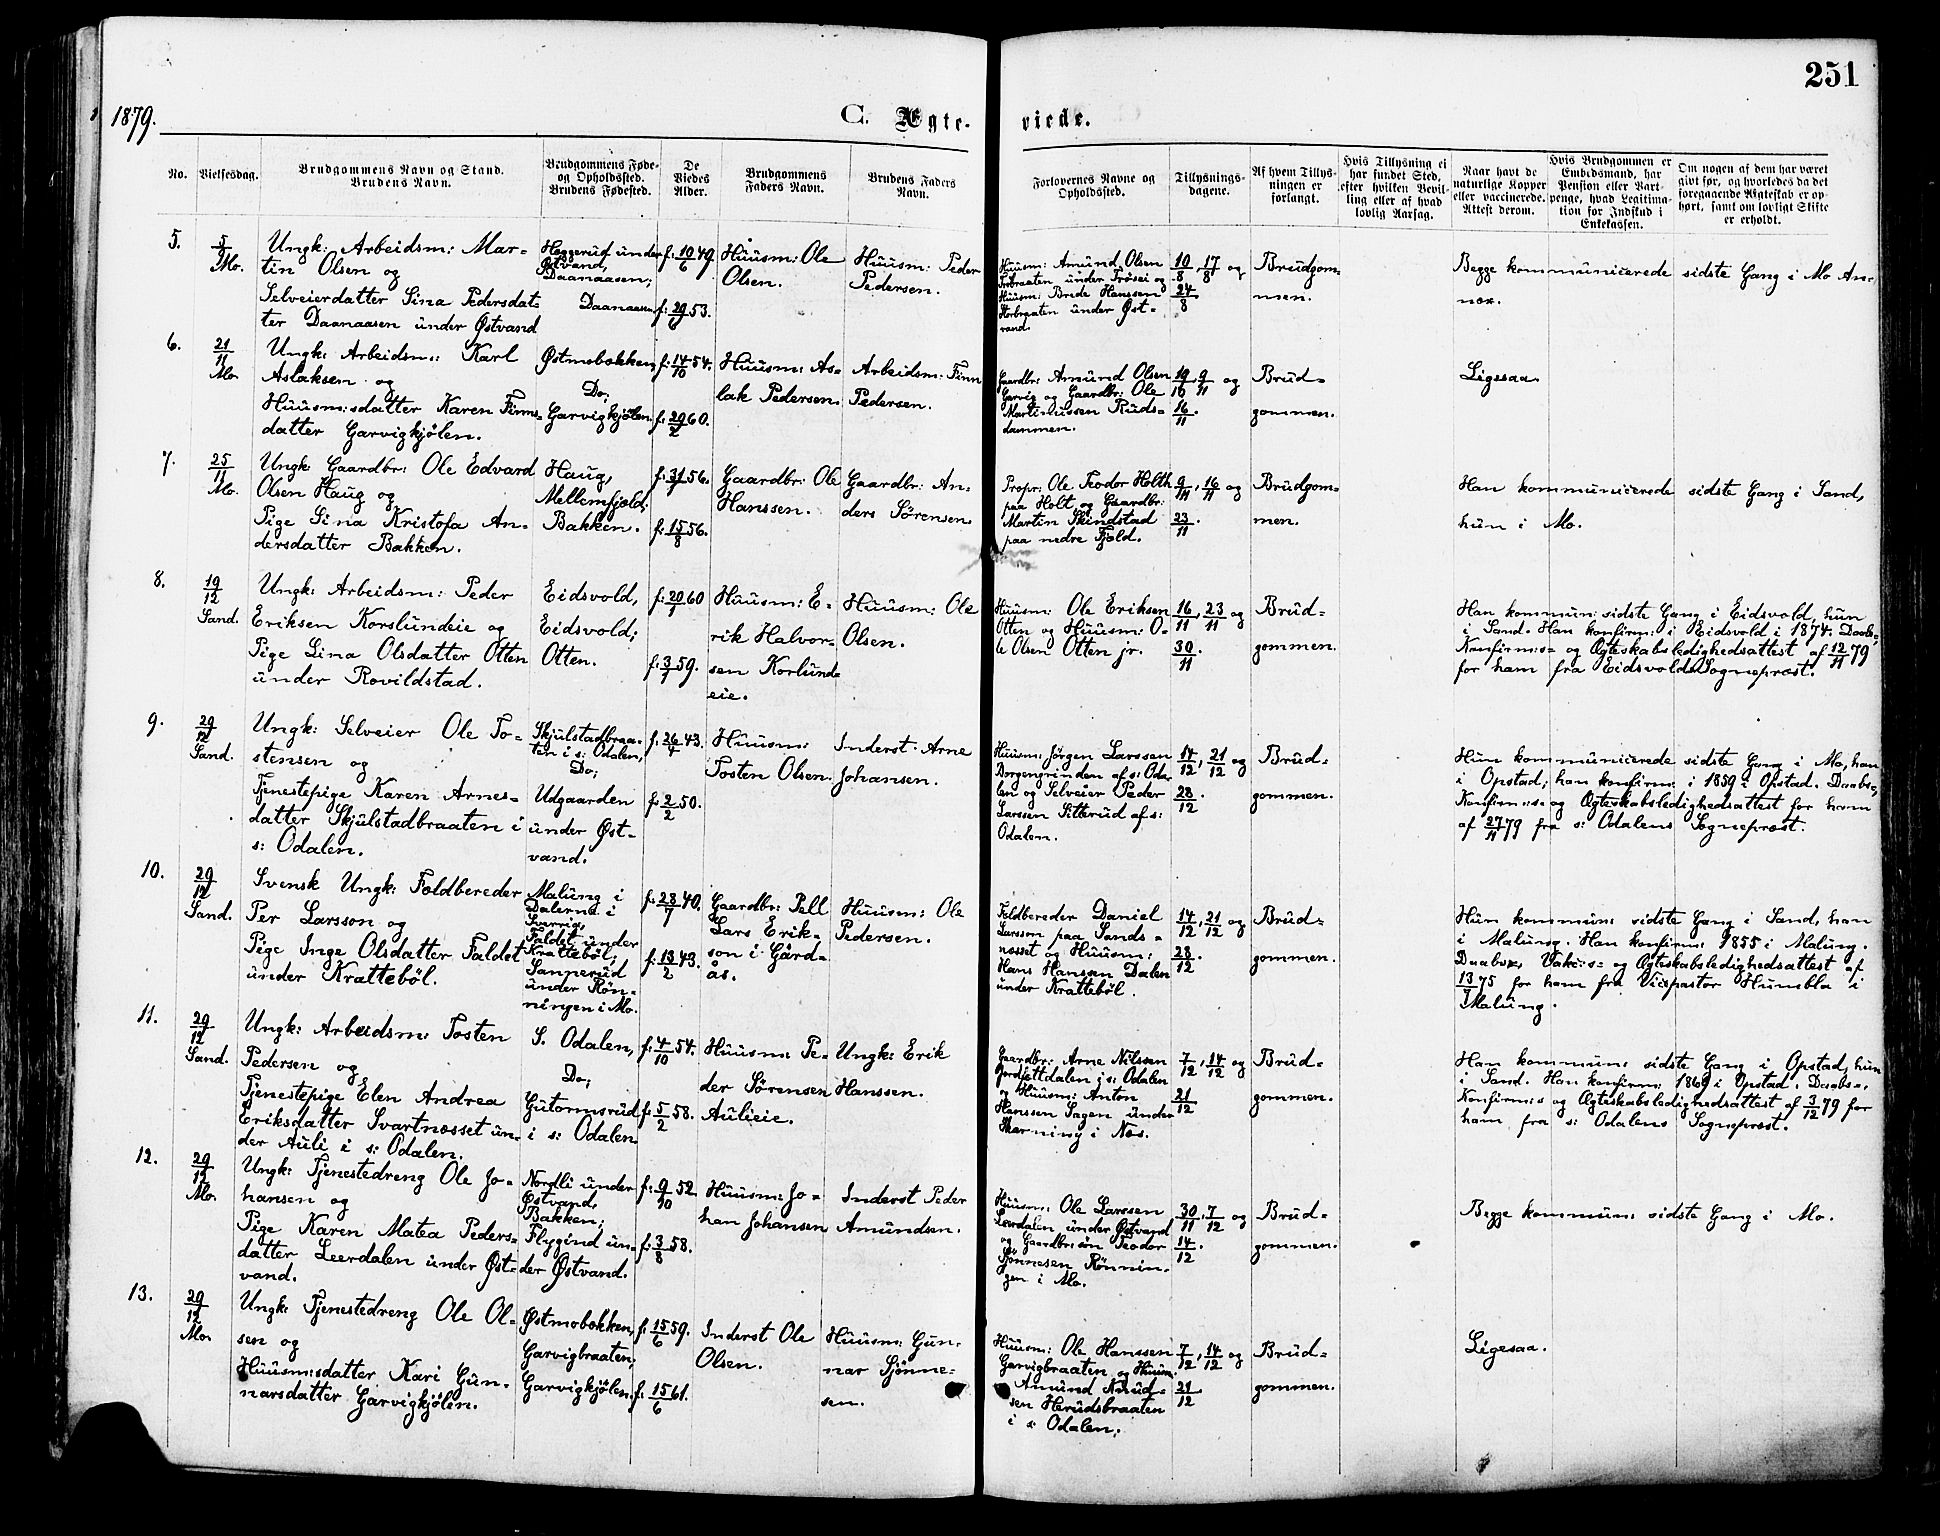 251
1879.
C. Ægteviede.
No.
Vielsesdag.
Brudgommens Navn og Stand.
Brudens Navn.
Brudgommens Føde-
og Opholdssted.
Brudens Fødested.
De
Viedes
Alder.
Brudgommens
Faders Navn.
Brudens Faders
Navn.
Forlovernes Navne og
Opholdssted.
Tillysnings-
dagene.
Af hvem Tillys-
ningen er
forlangt.
Hvis Tillysning ei
har fundet Sted,
efter hvilken Bevil-
ling eller af hvad
lovlig Aarsag.
Naar havt de
naturlige Kopper
eller vaccinerede.
Attest derom.
Hvis Brudgommen er
Embedsmand, har
Pension eller Vart-
penge, hvad Legitima-
tion for Indskud i
Enkekassen.
Om nogen af dem har været
givt før, og hvorledes da det
foregaaende Ægteskab er op-
hørt, samt om lovligt Skifte
er erholdt.
5.
5/9
Mo.
Ungk: Arbeidsm: Mar-
tin Olsen og
Selveierdatter Sina Pedersdat-
ter Daanaasen under Østvand
Haggerud under
Østvand,
Daanaasen;
Daanaasen
f: 10/6 49
f: 29/6 53.
Huusm: Ole
Olsen.
Huusm: Peder
Pedersen.
Huusm: Amund Olsen
under Trøsei og
Huusm: Brede Hanssen
Horbraaten under Øst-
vand.
10/8, 17/8 og
24/8
Brudgom-
men.
Begge kommunicerede sidste Gang i Mo An-
nex.
6.
21/11
Mo.
Ungk: Arbeidsm: Karl
Aslaksen og
Huusm:sdatter Karen Finns-
datter Garvigkjølen.
Østmobakken,
Do;
Garvigkjølen
f: 14/10 54.
f: 29/2 60.
Huusm: As-
lak Pedersen.
Arbeidsm: Finn
Pedersen.
Gaardbr: Amund Olsen
Garvig og Gaardbr: Ole
Martinussen Ruds-
dammen.
19/10, 9/11 og
16/11.
Brud-
gommen.
Ligesaa.
7.
25/11
Mo.
Ungk: Gaardbr: Ole Edvard
Olsen Haug og
Pige Sina Kristofa An-
dersdatter Bakken.
Haug,
Mellemfjeld;
Bakken.
f: 31/7 56.
f: 15/8 56.
Gaardbr: Ole
Hanssen.
Gaardbr: An-
ders Sørensen
Propr: Ole Teodor Holth
paa Holt og Gaardbr:
Martin Skindstad
paa nedre Fjeld.
9/11, 16/11 og
23/11.
Brudgom-
men.
Han kommunicerede sidste Gang i Sand,
hun i Mo.
8.
19/12
Sand.
Ungk: Arbeidsm: Peder
Eriksen Korslundeie og
Pige Lina Olsdatter Otten
under Rovildstad.
Eidsvold,
Eidsvold;
Otten.
f: 20/1 60
f: 3/7 59.
Huusm: E-
rik Halvor-
sen Korlund-
eie.
Huusm: Ole
Olsen.
Huusm: Ole Eriksen
Otten og Huusm: O-
le Olsen Otten jr.
16/11, 23/11 og
30/11.
Brud-
gommen.
Han kommun: sidste Gang i Eidsvold, hun
i Sand. Han konfirm: i Eidsvold i 1874. Daabs-,
Konfirm:s- og Ægteskabsledighedsattest af 12/11 79
for ham fra Eidsvolds Sogneprest.
9.
29/12
Sand.
Ungk: Selveier Ole To-
stensen og
Tjenestepige Karen Arnes-
datter Skjulstadbraaten i
s: Odalen.
Skjulstadbraa-
ten i s: Odalen,
Do;
Udgaarden
under Øst-
vand.
f: 26/4 43.
f: 2/2 50.
Huusm:
Tosten Olsen.
Inderst Arne
Johansen.
Huusm: Jørgen Larssen
Borgengrinden af s: Oda-
len og Selveier Peder
Larssen Sitterud af s:
Odalen.
14/12, 21/12 og
28/12.
Brud-
gommen.
Hun kommunicerede sidste Gang i Mo, han
i Opstad; han konfirm: i 1859 i Opstad. Daabs-,
Konfirm:s- og Ægteskabsledighedsattest for ham
af 27/11 79 fra s: Odalens Sogneprest.
10.
29/12
Sand.
Svensk Ungk: Foldbereder
Per Larsson og
Pige Inge Olsdatter Faldet
under Kratteböl.
Malung i
Dalerne i
Sverrig,
Faldet under
Kratteböl;
Sannerud
under Røn-
ningen i Mo.
f: 28/7 40.
f: 13/2 43.
Gaardbr: Pell
Lars Erik-
son i Gård-
ås.
Huusm: Ole
Pedersen.
Feldbereder Daniel
Larsson paa Sands-
nesset og Huusm:
Hans Hansen Dalen
under Kratteböl.
14/12, 21/12 og
28/12.
Brud-
gommen.
Hun kommun: sidste Gang i Sand, han
i Malung. Han konfirm: 1855 i Malung.
Daabs-, Vakc:s- og Ægteskabsledighedsattest af
13/7 75 for ham fra Vicepastor Humbla i
Malung.
11.
29/12
Sand.
Ungk: Arbeidsm: Tosten
Pedersen og
Tjenestepige Elen Andrea
Eriksdatter Svartnesset un-
der Auli i s: Odalen.
S. Odalen,
Do;
Gutormsrud
i s: Odalen
f: 4/10 54.
f: 5/2 58.
Huusm: Pe-
der Sørensen
Aulieie.
Ungk: Erik
Hanssen.
Gaardbr: Arne Nilssen
i s: Odalen
og Huusm: Anton
Hanssen Sagen under
Skarning i Nes.
7/12, 14/12 og
21/12
Brud-
gommen.
Han kommun: sidste Gang i Opstad, hun
i Sand. Han konfirm: 1869 i Opstad. Daabs-,
Konfirm:s og Ægteskabsledighedsattest af 3/12 79 for
ham fra s: Odalens Sogneprest.
12.
29/12
Mo.
Ungk: Tjenestedreng Ole Jo-
hansen og
Pige Karen Matea Peders-
datter Leerdalen under Øst-
vand.
Nordli under
Østvand,
Bakken;
Flygind un-
der Østvand.
f: 9/10 52.
f: 3/8 58.
Huusm: Jo-
han Johansen
Inderst Peder
Amundsen.
Huusm: Ole Larssen
Leerdalen under Østvand
og Gaardbr:søn Teodor
Sjønnesen Rønnin-
gen i Mo.
30/11, 7/12 og
14/12.
Brud-
gommen.
Begge kommun: sidste Gang i Mo.
13.
29/12
Mo.
Ungk: Tjenestedreng Ole Ol-
sen og
Huusm:sdatter Kari Gun-
narsdatter Garvigkjölen.
Østmobakken,
Garvigbraaten;
Garvigkjölen.
f: 15/6 59.
f: 15/6 61.
Inderst Ole
Olsen.
Huusm: Gun-
nar Sjönne-
sen.
Huusm: Ole Hanssen
Garvigbraaten og Huusm:
Amund Knud-
sen Herudsbraaten
i s: Odalen.
7/12, 14/12 og
21/12
Brud-
gommen.
Ligesaa.